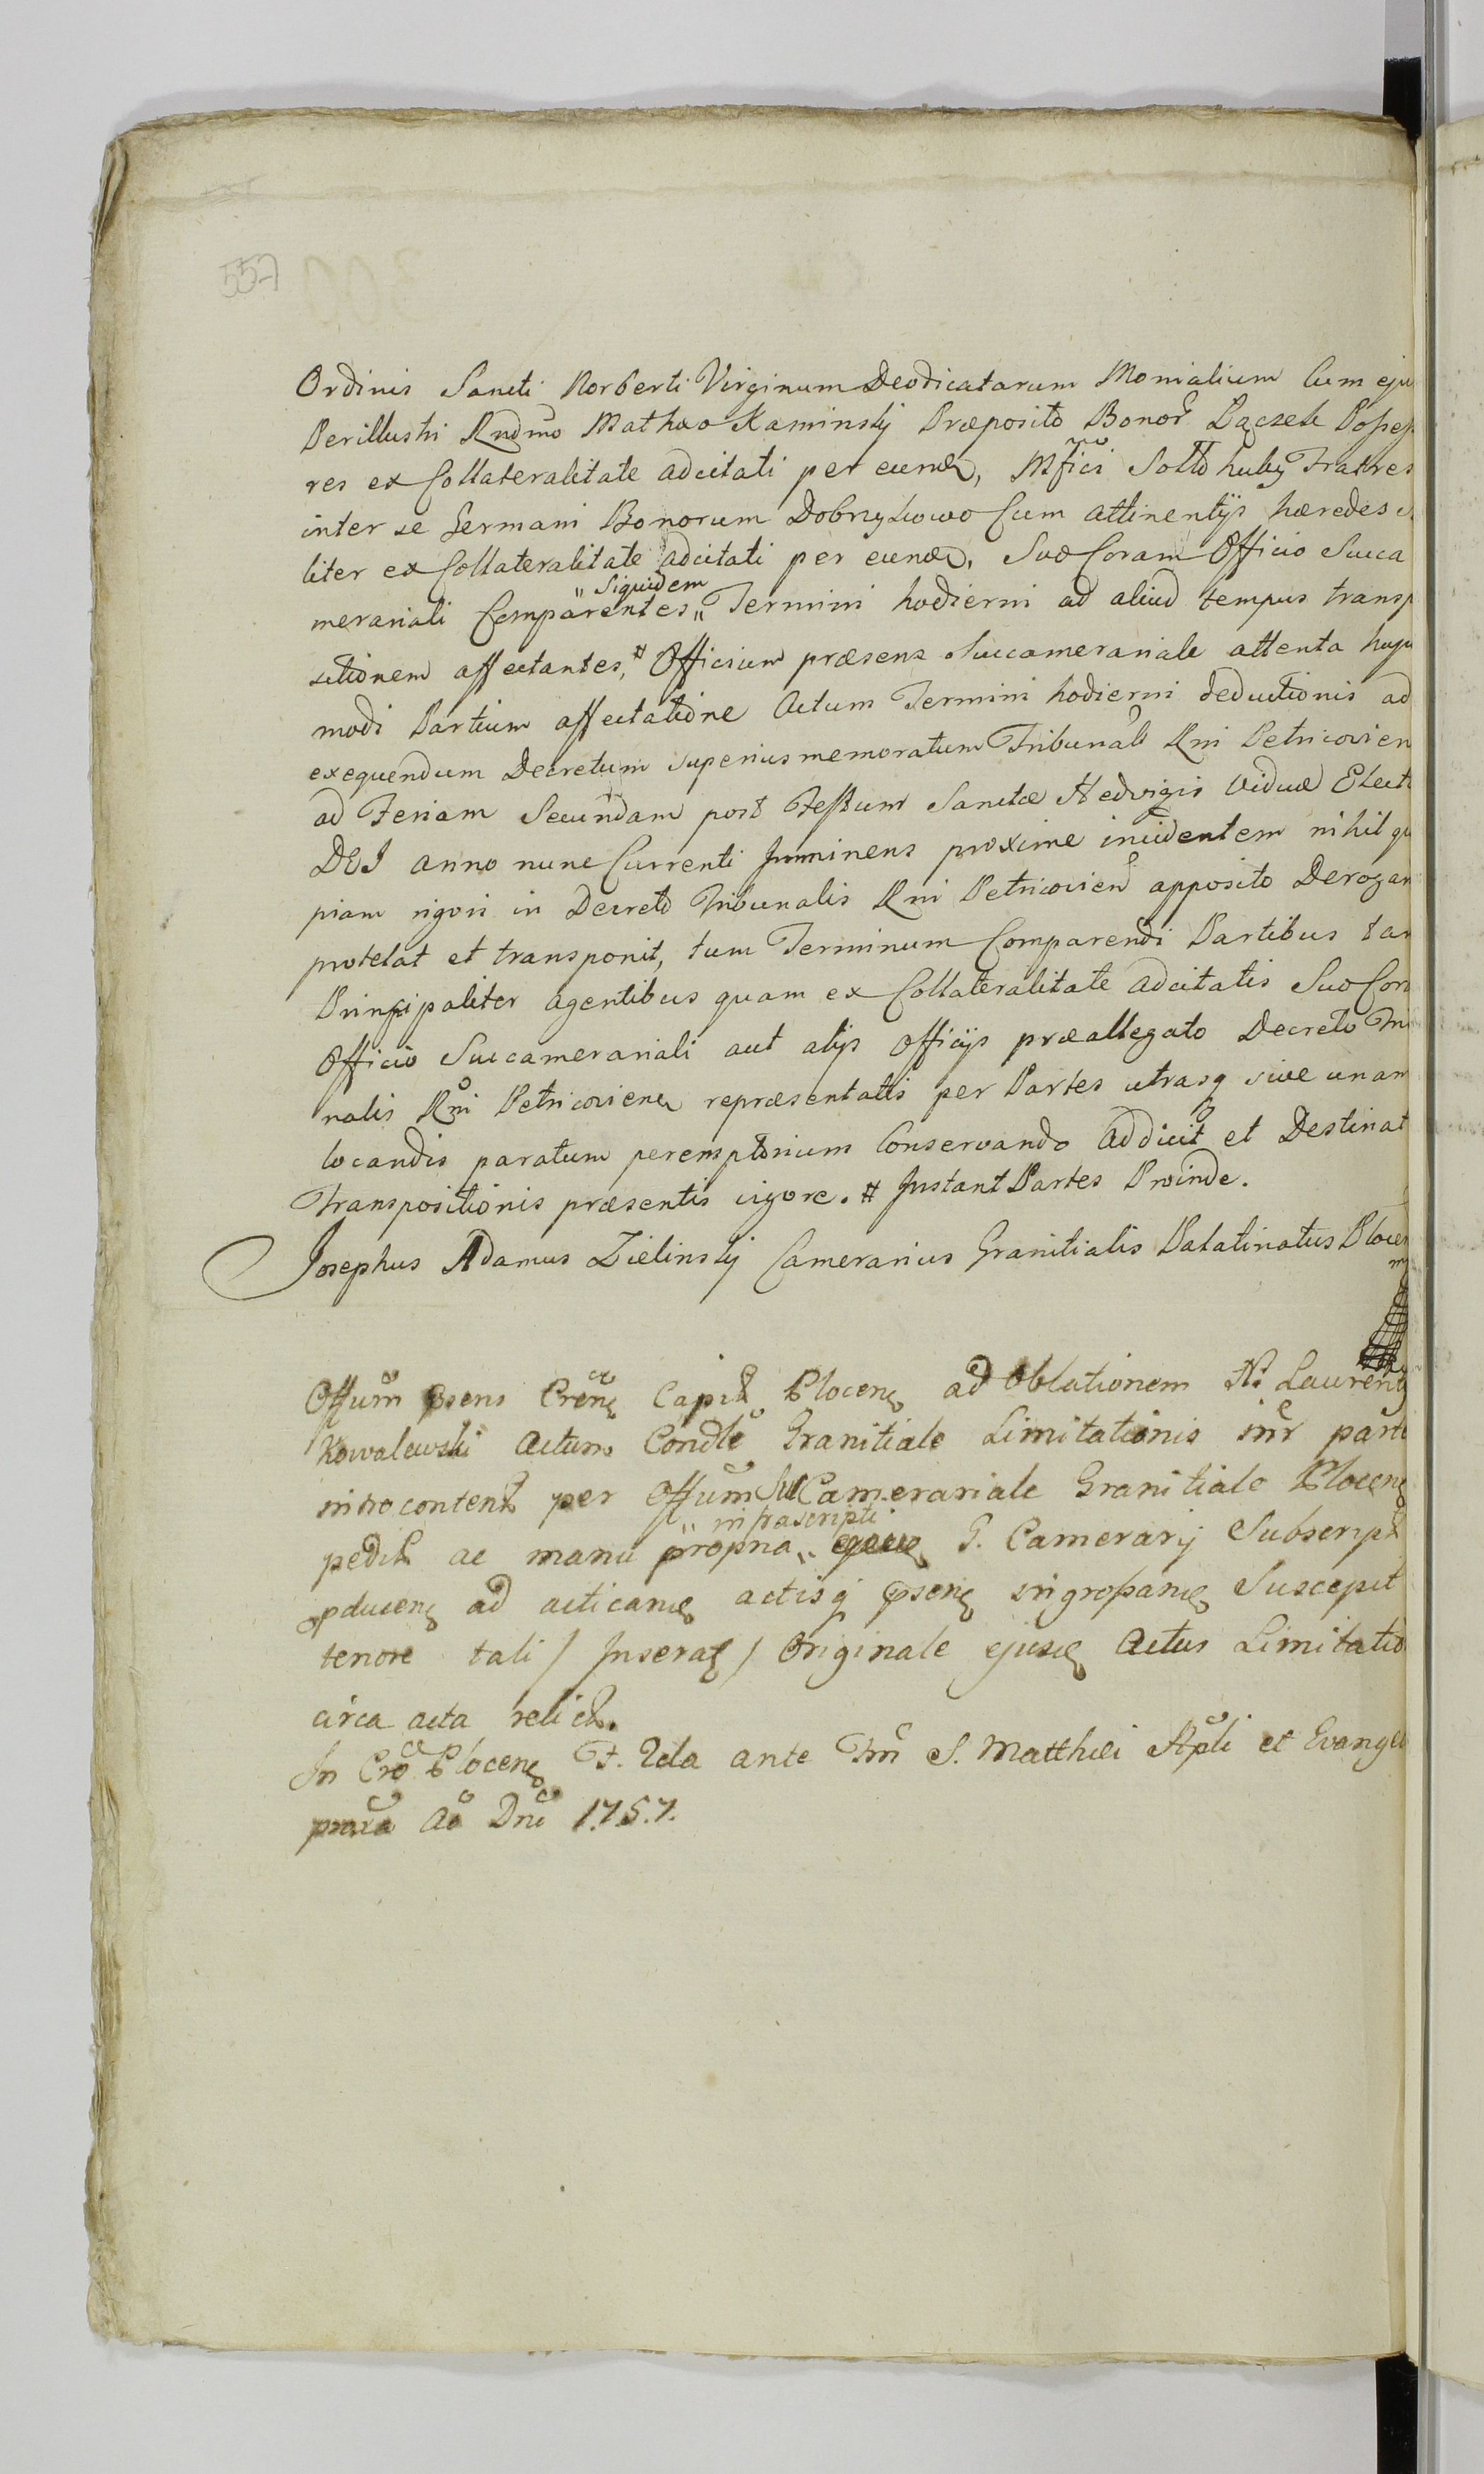 557
Ordinis Sancti Norberti Virginum Deodicatarum Monialium Cum eju
Perillustri Rndmo Mathæo Kaminskij Præposito Bonor Pączek Posseſ
res ex Collateralitate adcitati per eund, Mfici Sottd Fratres
inter se Germani Bonorum Dobrzykowo Cum attinentijs hæredes
liter ex Collateralitate adcitati per eund, Suo Coram Officio Succa
merariali Comparentes „ Siquidem „ Termini hodierni ad aliud tempus transp
sitionem affectantes, # Officium præsens Succamerariale attenta huju
modi Partium affectatione Actum Termini hodierni deductionis ad
exequendum Decretum superius memoratum Tribunalis Rni Petricovien
ad Feriam Secundam post Festum Sanctæ Hedvigis Viduæ Elect
DEI anno nunc Currenti Imminens proxime incidentem nihil qu
piam rigori in Decreto Tribunalis Rni Petricovien apposito Derogan
protelat et transponit, tum Terminum Comparendi Partibus tam
Principaliter agentibus quam ex Collateralitate adcitatis Suo Cor
Officio Succamerariali aut alijs Officijs præallegato Decreto Tri
nalis Rni Petricovien repræsentatis per Partes utrasq sive unam
locandis paratum peremptorium Conservando addicit et Destinat
Transpositionis præsentis vigore. # Instant Partes Proinde.
Josephus Adamus Zielinskij Camerarius Granitialis Palatinatus Ploce
Offum psens Cren Capit Plocen ad Oblationem N. Laurenty
Kowalewski Actum Condle Granitiale Limitationis intr part
introcontent per Offum SuCamerariale Granitiale Plocen
pedit ac manu propria „ infrascripti „ G. Camerarij Subscript
pducen ad acticand actisq psen ingroſsand Suscepit
tenore tali / Inserat / Originale ejusd Actus Limitatio
circa acta relict.
In Cro Plocen F. 2da ante Ftm S. Matthæi Apli et Evangel
pxma Ao Dni 1757.